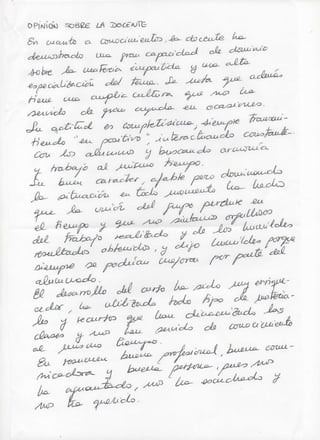 OPINIÓN SOBRE LA DOCENTE
En cuanto a conocimientos, la docente ha
demostrado una gran capacidad de dominio
sobre la materia impartida y una alta
especialización del tema. Se nota que además
tiene una amplia cultura que nos ha
servido de gran ayuda en ocasiones.
Su actitud es completísima, siempre transmi-
tiendo "en positivo", interactuando constante-
con los alumnos y buscando armonía
y trabajo al mismo tiempo.
Su buen carácter, afable pero dominando
la situación en todo momento ha hecho
que la unión del grupo perdure en
el tiempo y que nos sintamos orgullosos
del trabajo realizado y de los
resultados obtenidos, y digo humildes porque
siempre se podrían mejorar por parte del
alumnado.
El desarrollo del curso ha sido muy enrique-
cedor, ha utilizado todo tipo de materia-
les y recursos que han dinamizado las
clases y nos han servido de conocimiento
al mismo tiempo.
En resumen buena profesional, buena comu-
nicadora y buena persona, pues nos
ha aguantado, nos ha escuchado y
nos ha querido.